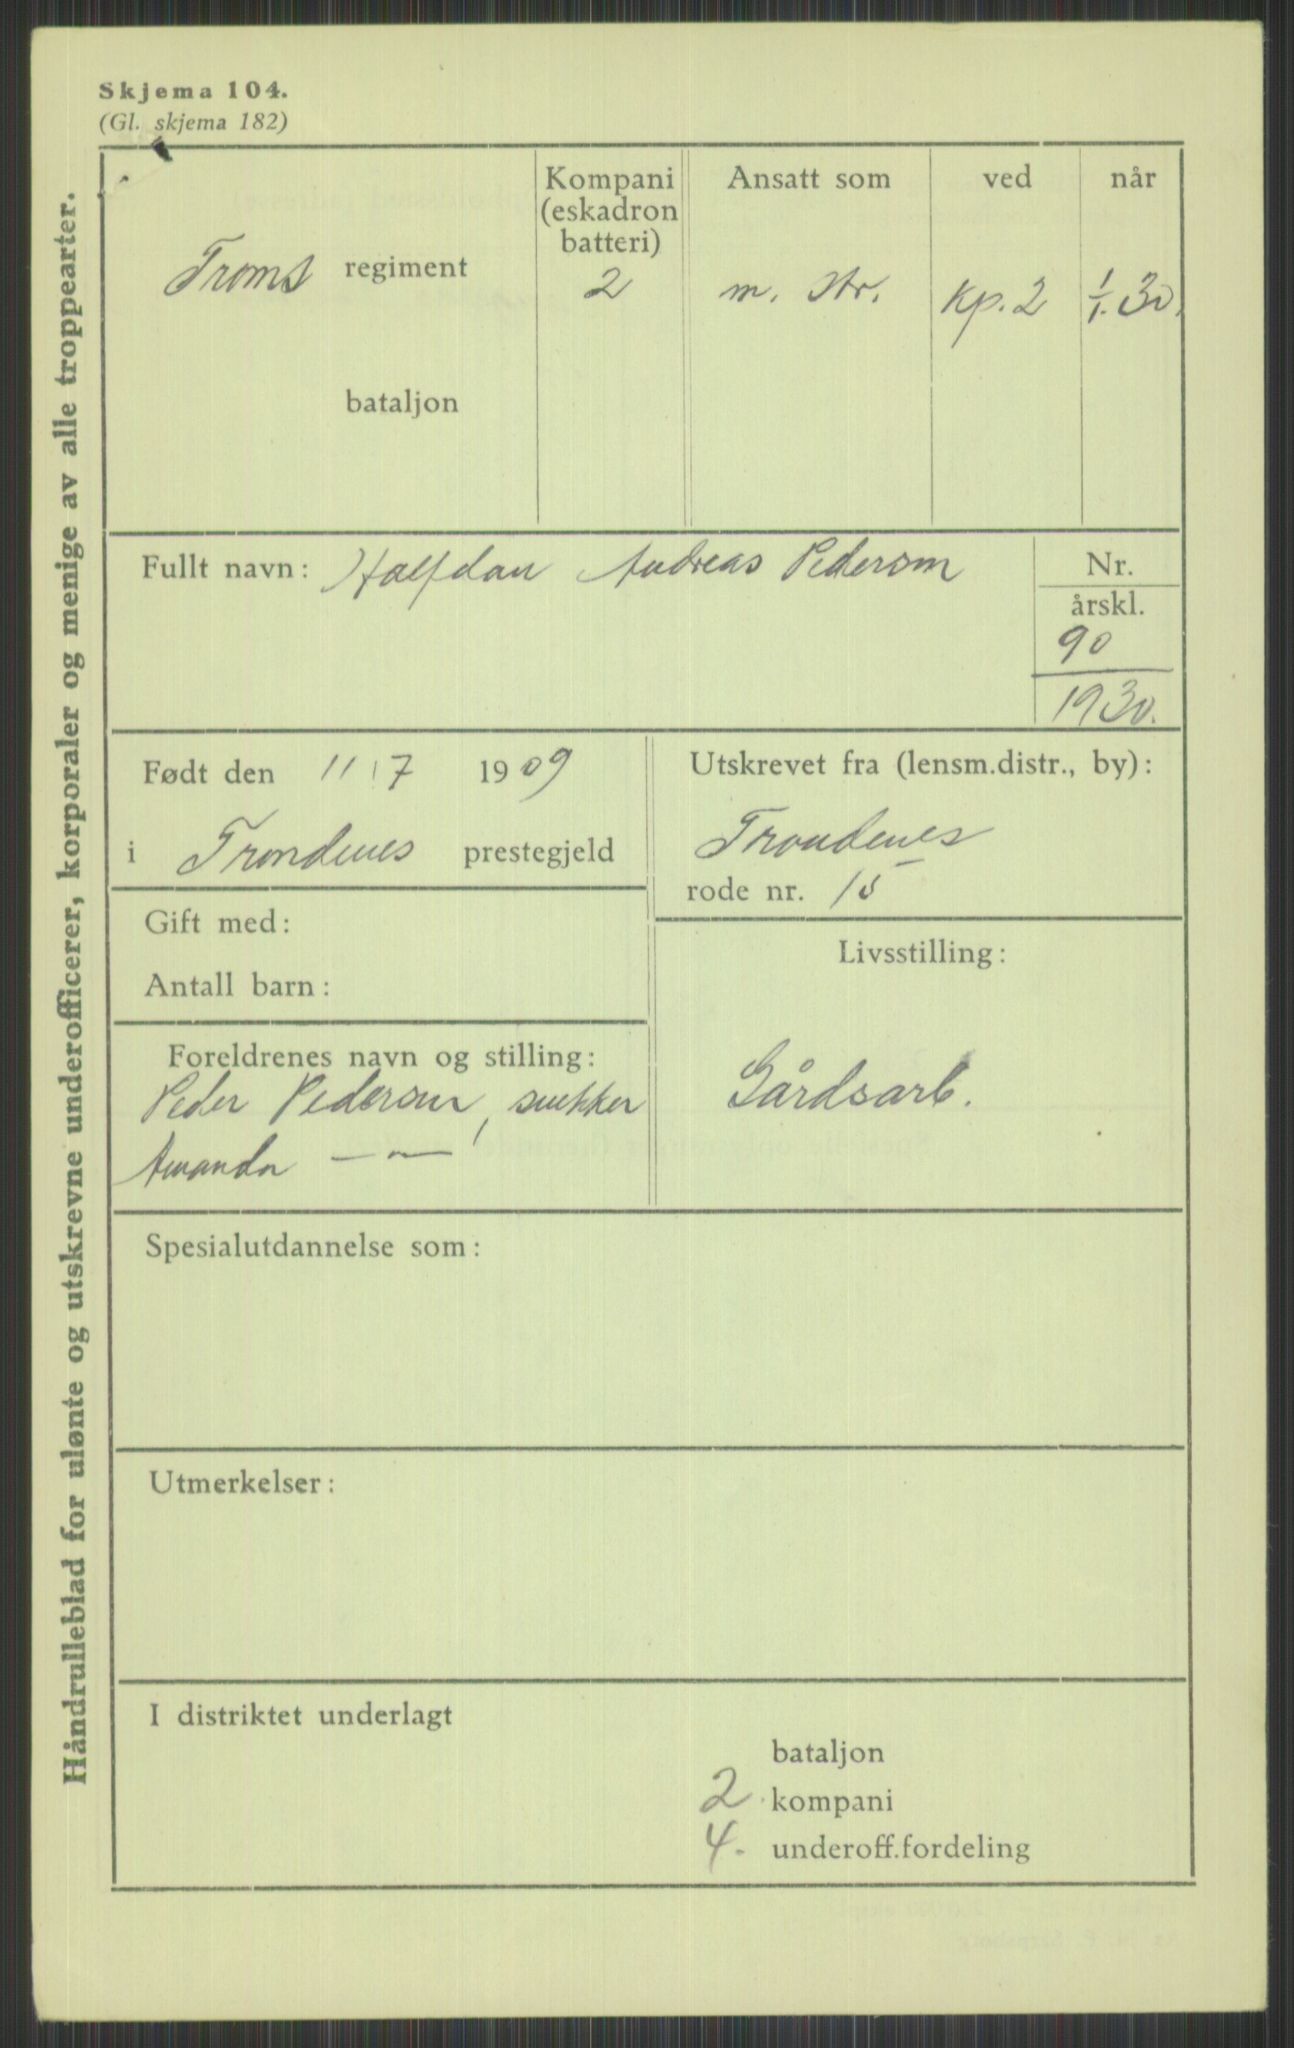 Skjema 104.
(Gl. skjema 182)
Håndrulleblad for ulønte og utskrevne underofficerer, korporaler og menige av alle troppearter.
Troms regiment
bataljon
Kompani
(eskadron
batteri)
2
Ansatt som
m. str.
ved
Kp. 2
når
1/1. 30.
Fullt navn: Halfdan Andreas Pedersen
Nr.
årskl.
90
1930.
Født den 11/7 1909
i Trondenes prestegjeld
Utskrevet fra (lensm.distr., by):
Trondenes
rode nr. 15
Gift med:
Antall barn:
Livsstilling:
Gårdsarb.
Foreldrenes navn og stilling:
Peder Pedersen, snekker
Amanda — „ —
Spesialutdannelse som:
Utmerkelser:
I distriktet underlagt
bataljon
2. kompani
4. underoff.fordeling